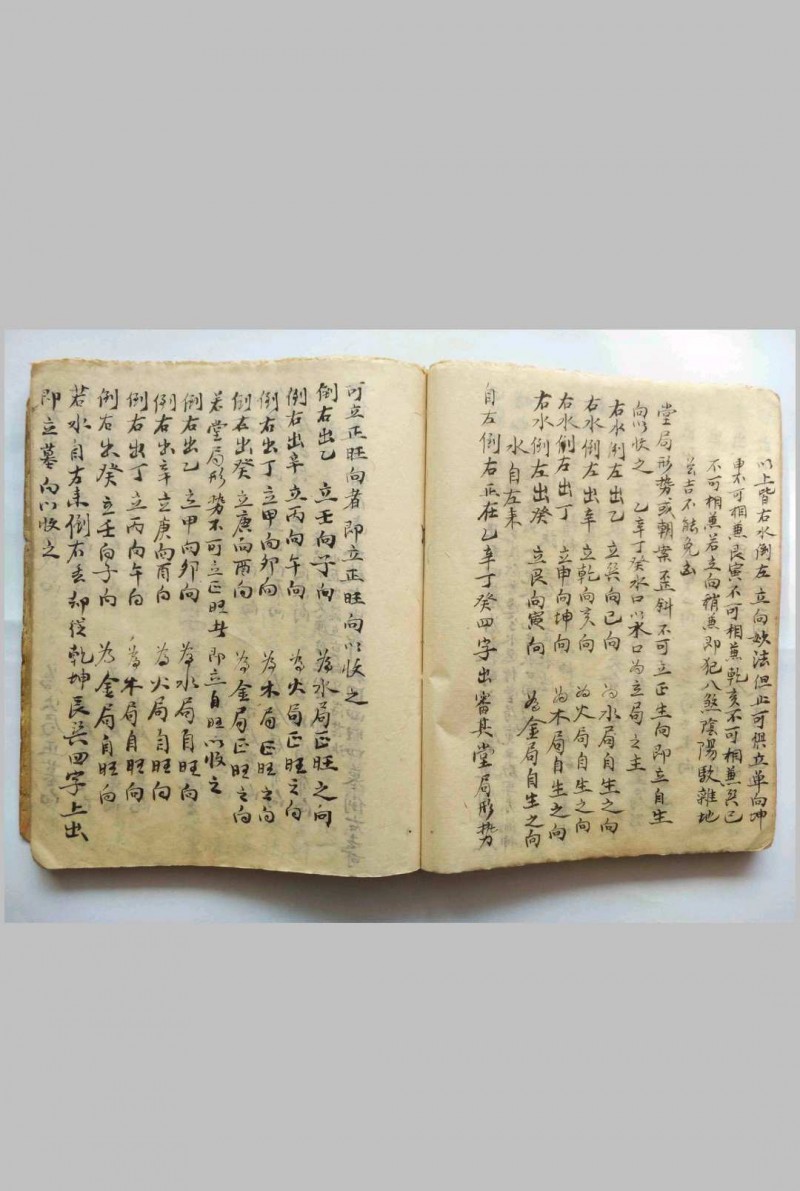 以上皆右水倒左立向妙法但止可俱立單向坤
申不可相兼艮寅不可相兼乾亥不可相兼巽巳
不可相兼若立向稍兼即犯八煞陰陽駁雜地
吉不能免凶
堂局形势或朝案歪斜不可立正生向即立自生
向以收之 乙辛丁癸水口以水口为立局之主
右水倒左出乙 立巽向巳向 为水局自生之向
右水倒左出辛 立乾向亥向 为火局自生之向
右水倒左出丁 立申向坤向 为木局自生之向
右水倒左出癸 立艮向寅向 為金局自生之向
水自左来
自左倒右正在乙辛丁癸四字出審其堂局形势
可立正旺向者即立正旺向以收之
倒右出乙 立壬向子向 為水局正旺之向
倒右出辛 立丙向午向 為火局正旺之向
倒右出丁 立甲向卯向 為木局正旺之向
倒右出癸 立庚向酉向 為金局正旺之向
若堂局形势不可立正旺 即立自旺以收之
倒右出乙 立甲向卯向 為水局自旺向
倒右出辛 立庚向酉向 為火局自旺向
倒右出丁 立丙向午向 為木局自旺向
倒右出癸 立壬向子向 為金局自旺向
若水自左来倒右去却從乾坤艮巽四字上出
即立墓向以收之